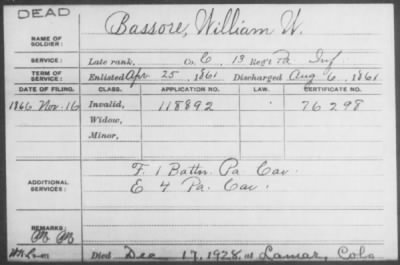 DEAD
NAME OF SOLDIER: Bassore, William W.
SERVICE: Late rank, Co. C, 13 Reg't Pa Inf
TERM OF SERVICE: Enlisted Apr. 25, 1861 Discharged Aug 6, 1861
DATE OF FILING. CLASS. APPLICATION NO. LAW. CERTIFICATE NO.
1866 Nov. 16 Invalid, 118892 76298
Widow,
Minor,
ADDITIONAL SERVICES: F. 1 Battn. Pa Cav.
E 4 Pa. Cav.
REMARKS:
Died Dec 17, 1928, at Lamar, Colo